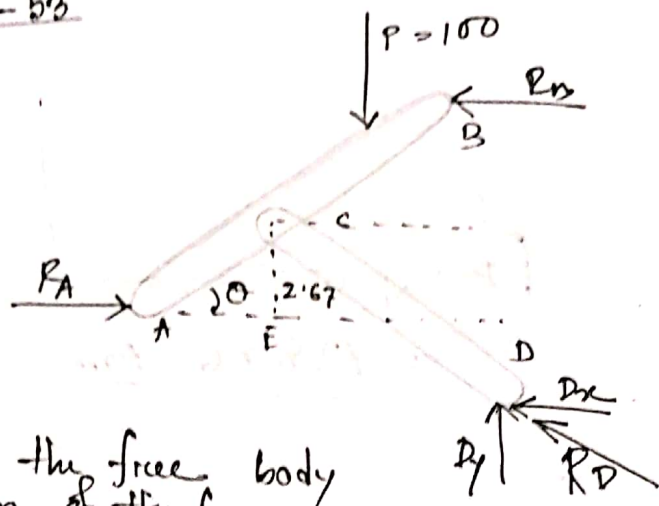 - 53
P = 100
R_B
B
C
R_A
θ
2.67
A
E
D
Dx
Dy
R_D
the free body